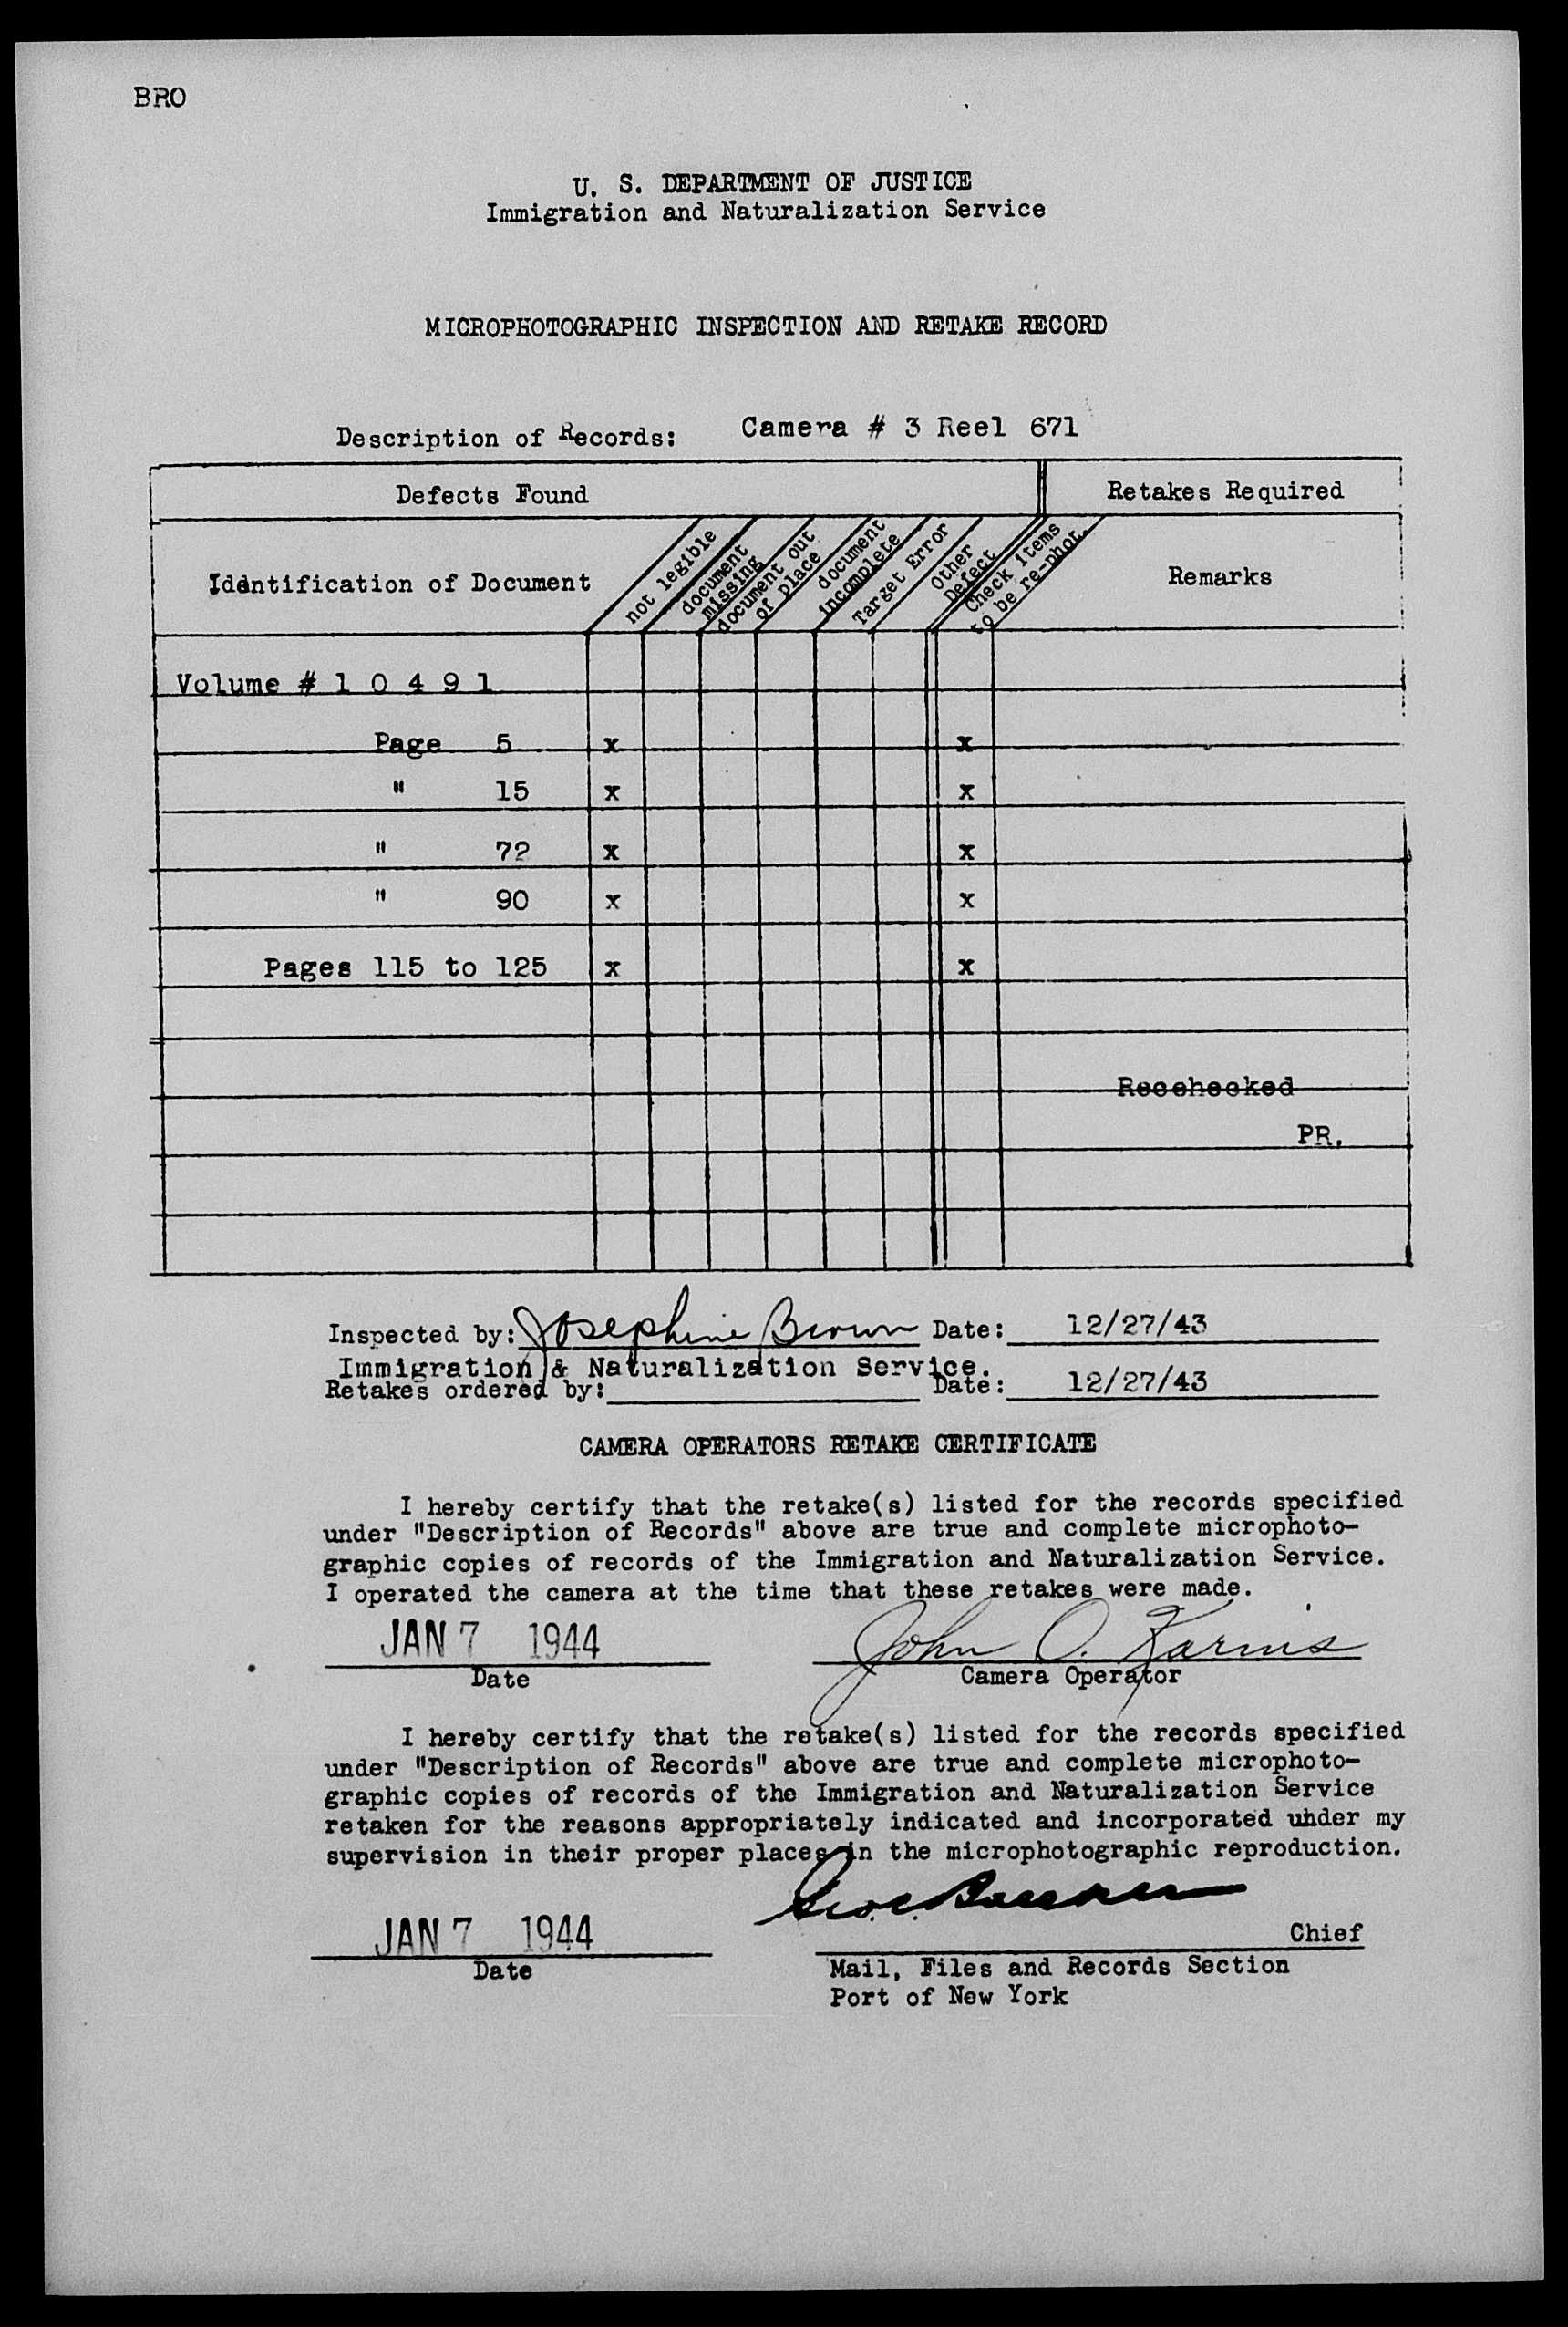 BRO
U. S. DEPARTMENT OF JUSTICE
Immigration and Naturalization Service
MICROPHOTOGRAPHIC INSPECTION AND RETAKE RECORD
Description of Records: Camera # 3 Reel 671
Defects Found Retakes Required
Identification of Document not legible document missing document out of place document incomplete Target Error Other Defect Check items to be re-phot. Remarks
Volume # 1 0 4 9 1
Page 5 x x
" 15 x x
" 72 x x
" 90 x x
Pages 115 to 125 x x
Recehecked
PR.
Inspected by: Josephine Brown Date: 12/27/43
Immigration & Naturalization Service.
Retakes ordered by: Date: 12/27/43
CAMERA OPERATORS RETAKE CERTIFICATE
I hereby certify that the retake(s) listed for the records specified
under "Description of Records" above are true and complete microphoto-
graphic copies of records of the Immigration and Naturalization Service.
I operated the camera at the time that these retakes were made.
JAN 7 1944 John O. Karins
Date Camera Operator
I hereby certify that the retake(s) listed for the records specified
under "Description of Records" above are true and complete microphoto-
graphic copies of records of the Immigration and Naturalization Service
retaken for the reasons appropriately indicated and incorporated under my
supervision in their proper places in the microphotographic reproduction.
JAN 7 1944 Chief
Date Mail, Files and Records Section
Port of New York